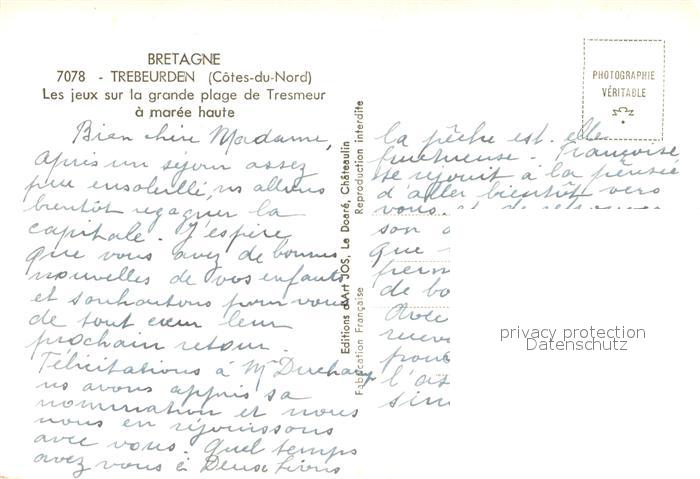 BRETAGNE
7078 - TREBEURDEN (Côtes-du-Nord)
Les jeux sur la grande plage de Tresmeur
à marée haute
PHOTOGRAPHIE
VÉRITABLE
Bien chère Madame,
après un séjour assez
peu ensoleillé, ns allons
bientôt regagner la
capitale. J'espère
que vous avez de bonnes
nouvelles de vos enfants
et souhaitons pour vous
de tout cœur leur
prochain retour.
Félicitations à Mr
ns avons appris sa
nomination et nous
nous en réjouissons
avec vous. Quel temps
avez vous à
Editions d'Art JOS, Le Doaré, Châteaulin
Reproduction interdite
Fabrication Française
la pêche est-elle
fructueuse. Françoise
se réjouit à la pensée
d'aller bientôt vers
vous et de
son
que
perm
de bo
Avec
l'as
privacy protection
Datenschutz